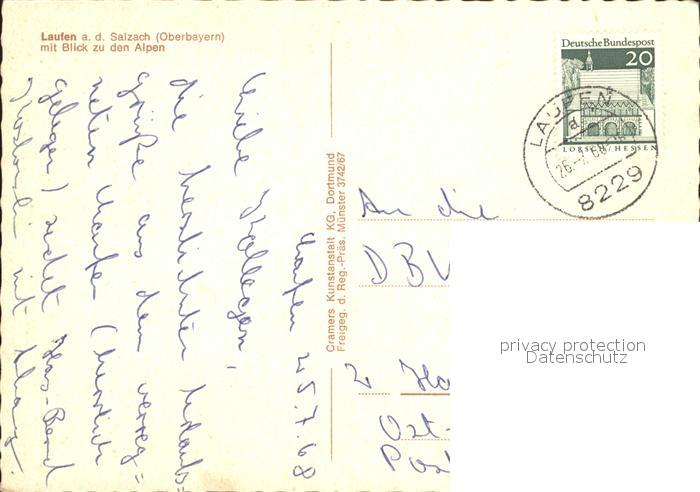 Laufen a. d. Salzach (Oberbayern)
mit Blick zu den Alpen
Laufen 25.7.68
Liebe Kollegen,
die herzlichsten Urlaubs=
grüße aus dem verreg=
neten Laufen (herrlich
gelegen) sendet
mit
Cramers Kunstanstalt KG. Dortmund
Freigeg. d. Reg.-Präs. Münster 3742/67
Deutsche Bundespost
20
LORSCH/HESSEN
LAUFEN
8229
An die
DBV
2 Ha
Ost-
privacy protection
Datenschutz